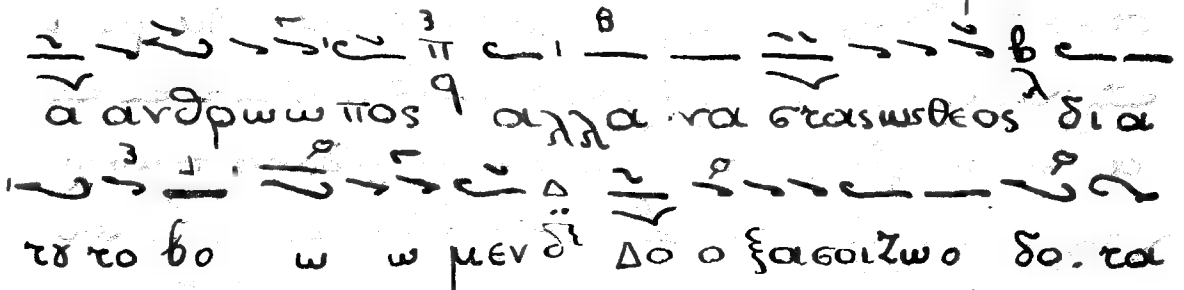 α ανθρωωπος αλλα να στασωςθεος δια
τȣτο βο ω ω μεν Δο ο ξασοιζωο δο.τα